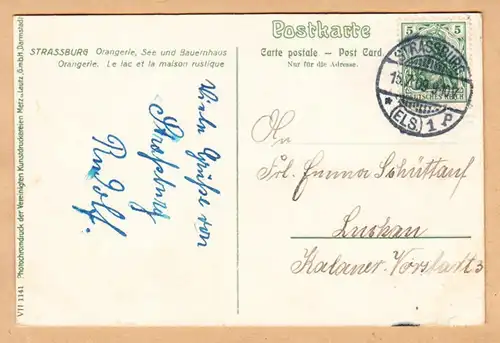 Postkarte
Carte postale – Post Card.
Nur für die Adresse.
STRASSBURG Orangerie, See und Bauernhaus
Orangerie. Le lac et la maison rustique
5 5
DEUTSCHES REICH
STRASSBURG
15.7.
* (ELS.) 1 P
Viele Grüße von
Straßburg
Rudolf.
An
Frl. Emma Schüttauf
Luckau
Kalauer-Vorstadt 3
VII 1141 Photochromdruck der Vereinigten Kunstdruckereien Metz u. Lautz, G.m.b.H. Darmstadt